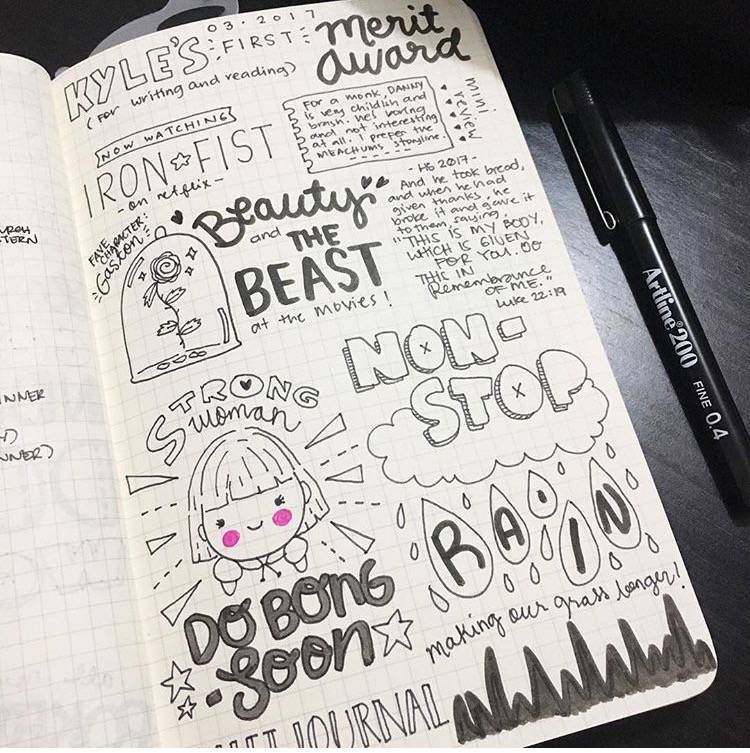 03.2017
KYLE'S FIRST merit award
(for writing and reading)
NOW WATCHING
IRON FIST
-on netflix-
For a monk, DANNY
is very childish and
brash. He's boring
and not interesting
at all. I prefer the
MEACHUMS storyline.
mini review
FAVE CHARACTER:
Gaston
Beauty
and THE
BEAST
at the movies!
- H6 2017 -
And he took bread,
and when he had
given thanks, he
broke it and gave it
to them, saying,
"THIS IS MY BODY,
WHICH IS GIVEN
FOR YOU. DO
THIS IN
Remembrance
OF ME."
Luke 22:19
NON-
STOP
RAIN
making our grass longer!
STRONG
woman
DO BONG
-Soon
JOURNAL
TERN
INNER
NNER)
Artline®200
FINE 0.4